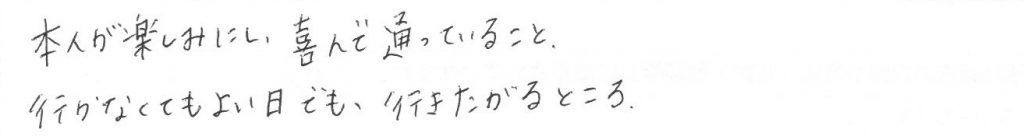 本人が楽しみにし、喜んで通っていること.
行かなくてもよい日でも、行きたがるところ.